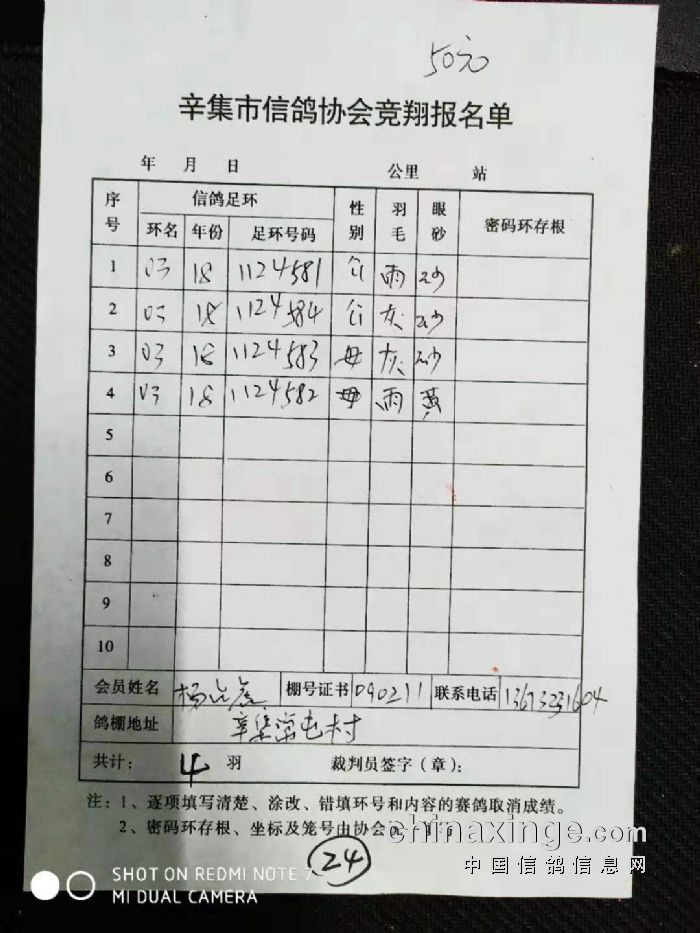 50元
辛集市信鸽协会竞翔报名单
年 月 日 公里 站
序号 信鸽足环 性别 羽毛 眼砂 密码环存根
环名 年份 足环号码
1 03 18 1124581 公 雨 砂
2 03 18 1124584 公 灰 砂
3 03 18 1124583 母 灰 砂
4 03 18 1124582 母 雨 黄
5
6
7
8
9
10
会员姓名 杨 棚号证书 090211 联系电话 13673231604
鸽棚地址 辛集 屯村
共计： 4 羽 裁判员签字（章）：
注：1、逐项填写清楚、涂改、错填环号和内容的赛鸽取消成绩。
2、密码环存根、坐标及笼号由协会
24
chinaxinge.com
中国信鸽信息网
SHOT ON REDMI NOTE 7
MI DUAL CAMERA